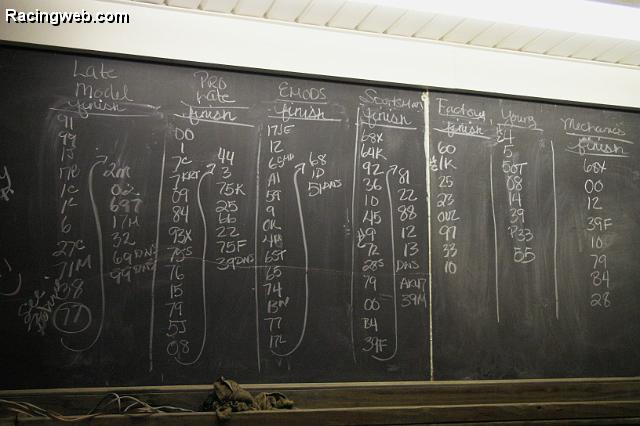 Racingweb.com
Late
Model
finish
91
99
17B
1C
12
6
27C
71M
58
77
See
2m
69T
17M
32
69 DNS
99 DNS
Pro
Late
finish
00
1
7C
09
84
93X
76
15
79
5J
08
44
3
75K
25
66
22
75F
39 DNS
EMODS
finish
17JE
12
A1
59
9
OK
65T
65
74
77
17L
68
1D
51 DNS
Sportsman
finish
68X
64K
92
36
10
45
9
72
28S
79
00
84
39F
81
22
88
12
13
DNS
39M
Factory
finish
60
1K
25
23
97
33
10
Young
4
5
50T
08
14
39
P33
55
Mechanics
finish
68X
00
12
39F
10
79
84
28